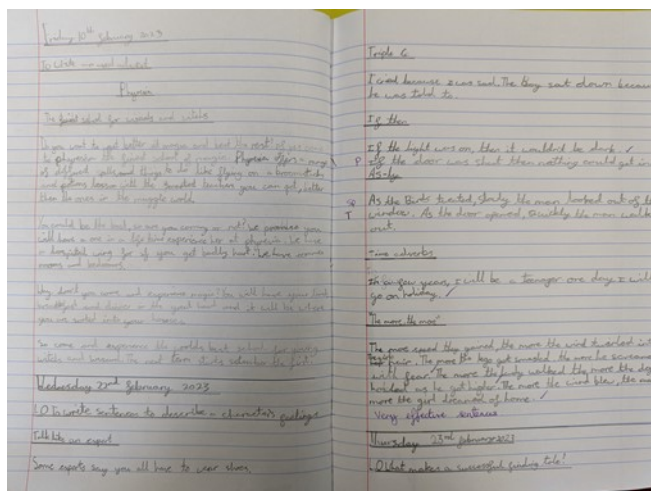 Friday 10th february 2023
To write
Physron
The finist school for wizards and witchs
Do you want to get better at magic and beat the rest? if yes come
to physron the finist school of magic. Physron offers a range
of different spells and things to do like flying on a broomstick
and potions lessons with the greatest teachers you can get, better
than the ones in the muggle world.
You could be the best, so are you coming or not? We promise you
will have a one in a life time experience here at physron. We have
a hospital wing for if you get badly hurt. We have common
rooms and bedrooms.
Why don't you come and experience magic? You will have your first
breakfast and dinner in the great hall and it will be where
you are sorted into your houses.
So come and experience the worlds best school for young
witches and wizards. The next term starts september the first.
Wednesday 22nd february 2023
LO To write sentences to describe a characters feelings
Talk like an expert
Some experts say you all have to wear shoes.
Triple C
I cried because I was sad. The boy sat down because
he was told to.
If then
If the light was on, then it wouldn't be dark. ✓
P If the door was shut then nothing could get in
As-ly
Sp As the Birds tweeted, slowly the man looked out of the
T window. As the door opened, quickly the man walked
out.
Time adverbs
In a few years, I will be a teenager one day I will
go on holiday. ✓
"The more, the more"
The more speed they gained, the more the wind
hair. The more the boy got the more he screamed
with fear. The more the lady walked the more the dog
howled as he got higher. The more the wind blew, the
more the girl dreamed of home. ✓
Very effective sentences
Thursday 23rd february 2023
LO What makes a successful finding tale?